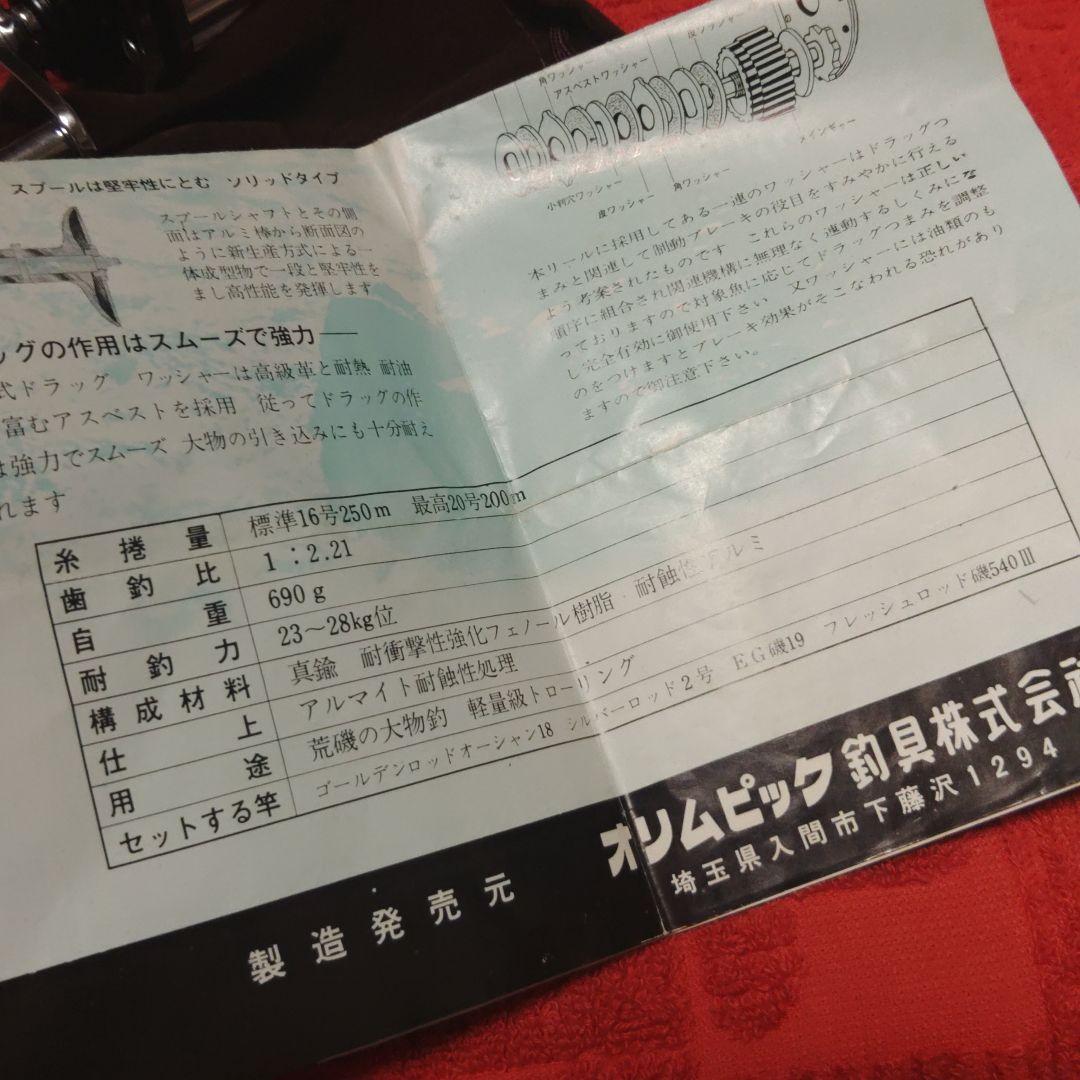 スプールは堅牢性にとむ ソリッドタイプ
スプールシャフトとその側
面はアルミ棒から断面図の
ように新生産方式による一
体成型物で一段と堅牢性を
まし高性能を発揮します
グの作用はスムーズで強力──
式ドラッグ ワッシャーは高級革と耐熱 耐油
富むアスベストを採用 従ってドラッグの作
は強力でスムーズ 大物の引き込みにも十分耐え
れます
角ワッシャー
アスベストワッシャー
皮ワッシャー
小判穴ワッシャー
皮ワッシャー
角ワッシャー
メインギャー
本リールに採用してある一連のワッシャーはドラッグつ
まみと関連して制動ブレーキの役目をすみやかに行える
よう考案されたものです これらのワッシャーは正しい
順序に組合され関連機構に無理なく連動するしくみにな
っておりますので対象魚に応じてドラッグつまみを調整
し完全有効に御使用下さい 又ワッシャーには油類のも
のをつけますとブレーキ効果がそこなわれる恐れがあり
ますので御注意下さい。
糸捲量 標準16号250m 最高20号200m
歯釣比 1：2.21
自重 690g
耐釣力 23〜28kg位
構成材料 真鍮 耐衝撃性強化フェノール樹脂・耐蝕性アルミ
仕上 アルマイト耐蝕性処理
用途 荒磯の大物釣 軽量級トローリング
セットする竿 ゴールデンロッドオーシャン18 シルバーロッド2号 EG磯19 フレッシュロッド磯540Ⅲ
製造発売元
オリムピック釣具株式会社
埼玉県入間市下藤沢1294